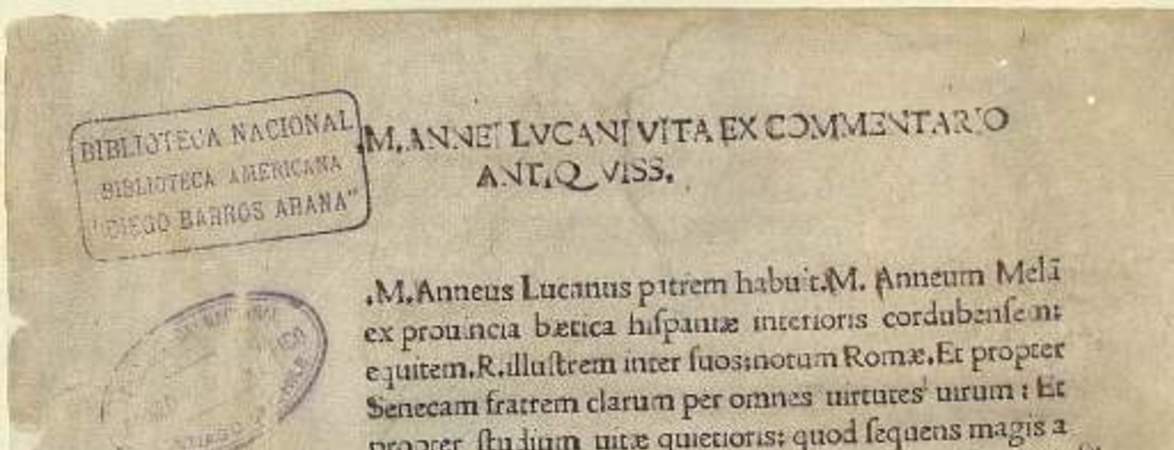 BIBLIOTECA NACIONAL
BIBLIOTECA AMERICANA
"DIEGO BARROS ARANA"
.M.ANNEI LVCANI VITA EX COMMENTARIO
ANTIQVISS.
.M.Anneus Lucanus patrem habuit.M. Anneum Melā
ex prouincia bætica hiſpaniæ interioris cordubenſem:
equitem.R.illuſtrem inter ſuos:notum Romæ.Et propter
Senecam fratrem clarum per omnes uirtutes uirum : Et
propter ſtudium uitæ quietioris: quod ſequens magis a